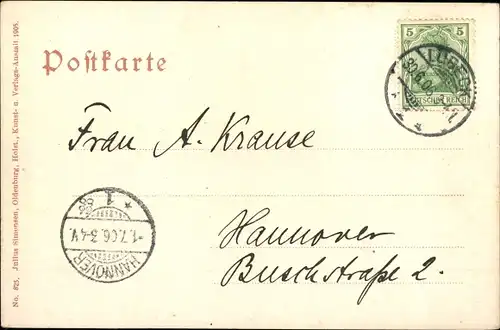 Postkarte
5 5
LÜBECK
30.6.06
DEUTSCHES REICH
Frau A. Krause
Hannover
Buschstraße 2.
* 1 *
1.7.06. 3-4 V.
HANNOVER
No. 825. Julius Simonsen, Oldenburg, Holst., Kunst- u. Verlags-Anstalt 1905.